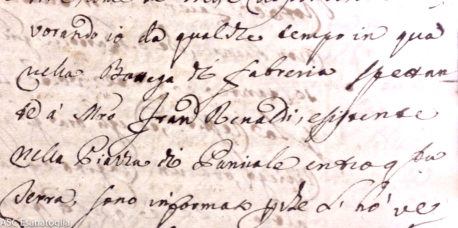 vorando io da qualche tempo in qua
nella Bottega di Fabreria spettan
te à Mro Fran Renaldi, esistente
nella Piazza di Panicale entro qsta
Terra, sono informato che l' hò ve
ASC Esanatoglia